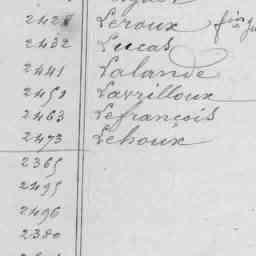 2428 Leroux
2432 Lucas
2441 Lalande
2451 Lavrilloux
2463 Lefrançois
2473 Lehoux
2365
2495
2496
2380